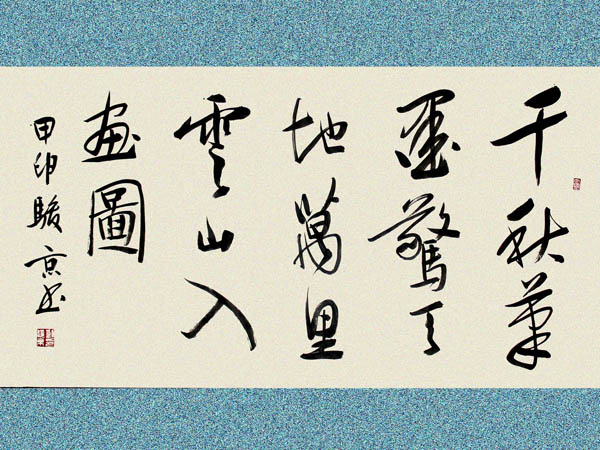 千秋筆
墨驚天
地萬里
雲山入
畫圖
甲申駿京书